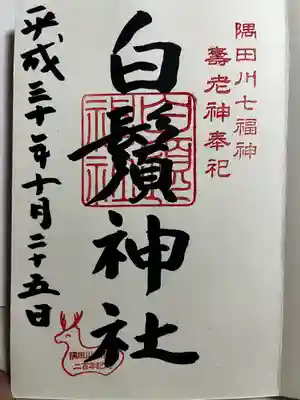 隅田川七福神
壽老神奉祀
白鬚神社
平成三十年十月二十五日
隅田川